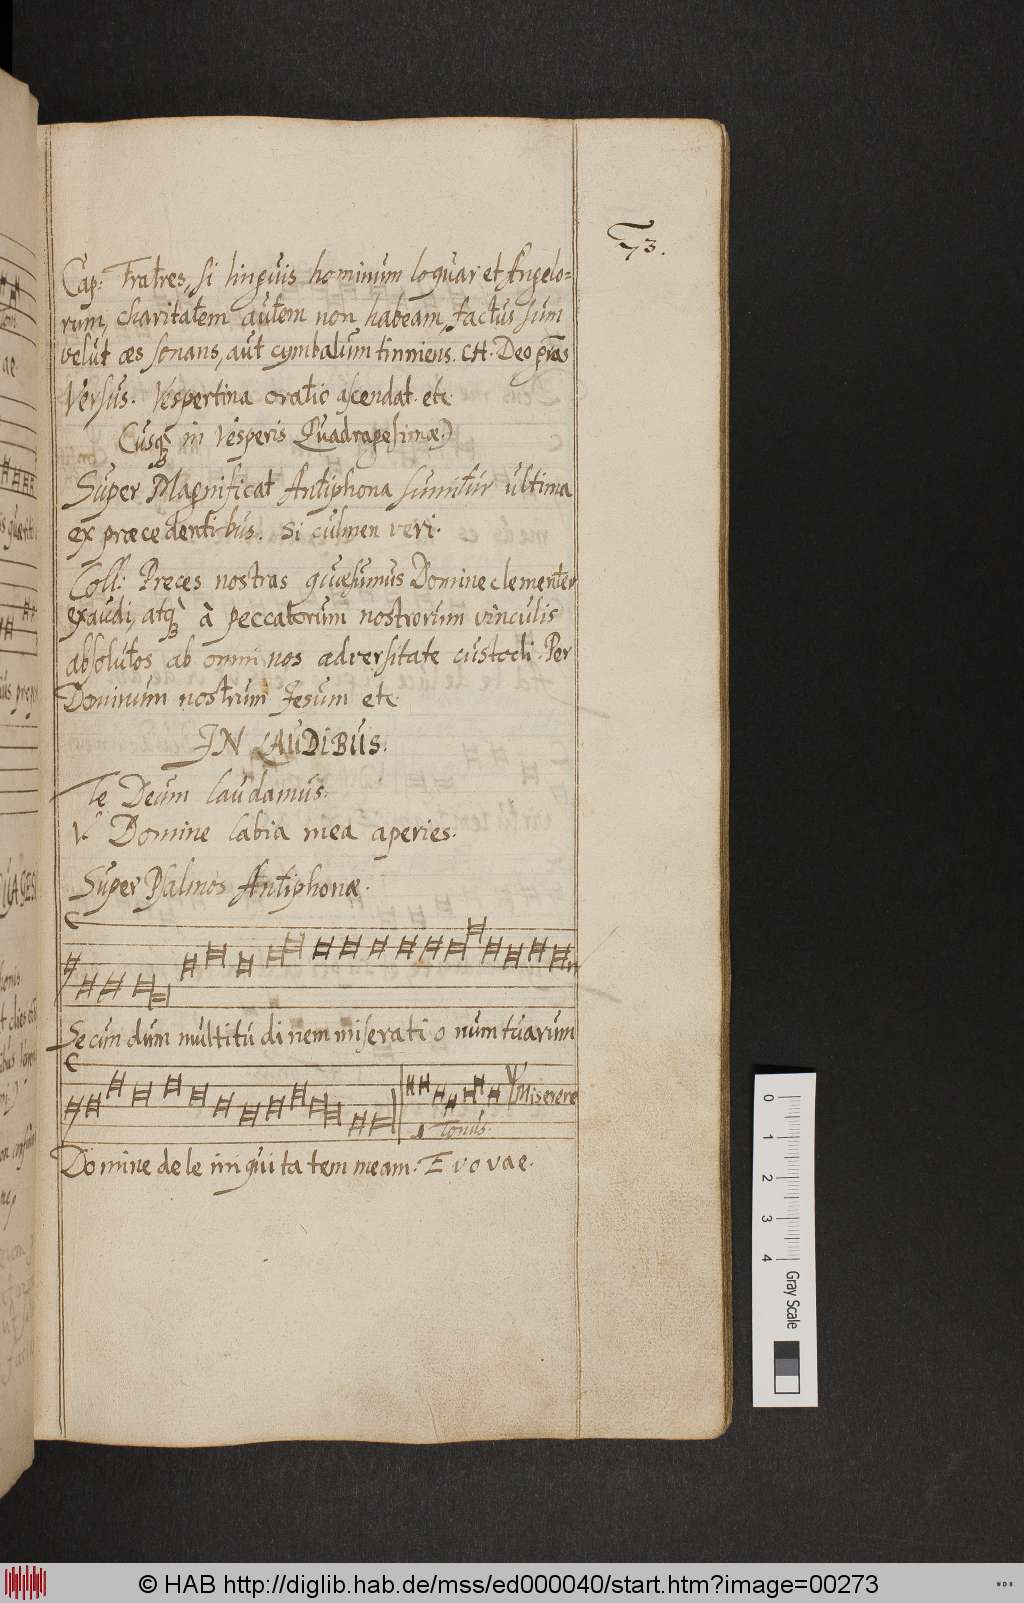 73.
Cap: Fratres, si linguis hominum loquar et Angelo=
rum, charitatem autem non habeam, factus sum
velut æs sonans, aut cymbalum tinniens. CH. Deo gras
Versus. Vespertina oratio ascendat. etc
(usq in Vesperis Quadragesimæ.)
Super Magnificat Antiphona sumitur ultima
ex præcedentibus. Si culmen veri.
Coll: Preces nostras quæsumus Domine clementer
exaudi, atq à peccatorum nostrorum vinculis
absolutos ab omni nos adversitate custodi. Per
Dominum nostrum Jesum etc
IN LAUDIBUS.
Te Deum laudamus.
V Domine labia mea aperies.
Super Psalmos Antiphonæ.
Se cun dum multitu di nem miserati o num tuarum
Miserere
1 Tonus.
Domine dele iniqui ta tem meam. E vo vae.
© HAB http://diglib.hab.de/mss/ed000040/start.htm?image=00273
0
1
2
3
4
Gray Scale